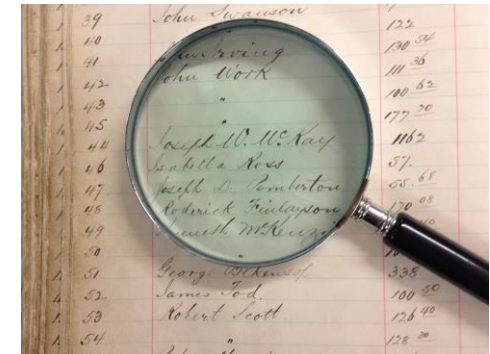 39 John Swanson 122
40 Irving 130 54
41 John Work 111 36
42 " 100 62
43 " 177 20
45 Joseph W. McKay 1162
46 Isabella Ross 57.
47 Joseph D. Pemberton 55. 68
48 Roderick Finlayson 170 08
49 Kenneth McKenzie
50
51 George Blenkinsop 338
52 James Tod. 100 50
53 Robert Scott 126 40
54 " 128 20